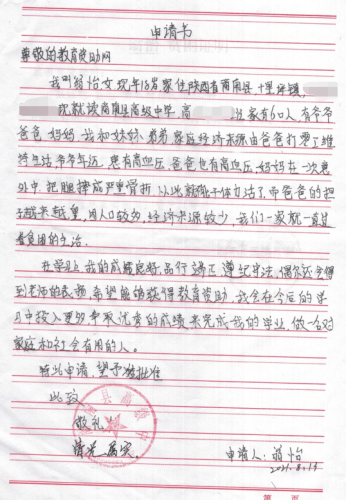 申请书
尊敬的教育资助网
我叫 怡 女 现年18岁 家住陕西省商南县十里坪镇,
现就读商南县高级中学,高 班 家有6口人 有爷爷
爸爸 妈妈 我和妹妹 弟弟 家庭经济来源由爸爸打零工维
持生活 爷爷年迈, 患有高血压, 爸爸也有高血压, 妈妈在一次意
外中, 把腿摔成严重骨折 从此就能干体力活了 而爸爸的担
子越来越重, 因人口较多, 经济来源较少, 我们一家就一直过
着贫困的生活.
在学习上 我的成绩良好, 品行端正 遵纪守法, 偶尔还会得
到老师的表扬 希望能够获得教育资助, 我会在今后的学
习中投入更多争取优秀的成绩来完成我的学业, 做一名对
家庭和社会有用的人。
特此申请, 望予 批准
此致
敬礼
情况属实,
申请人: 怡
2021.8.19
第 页